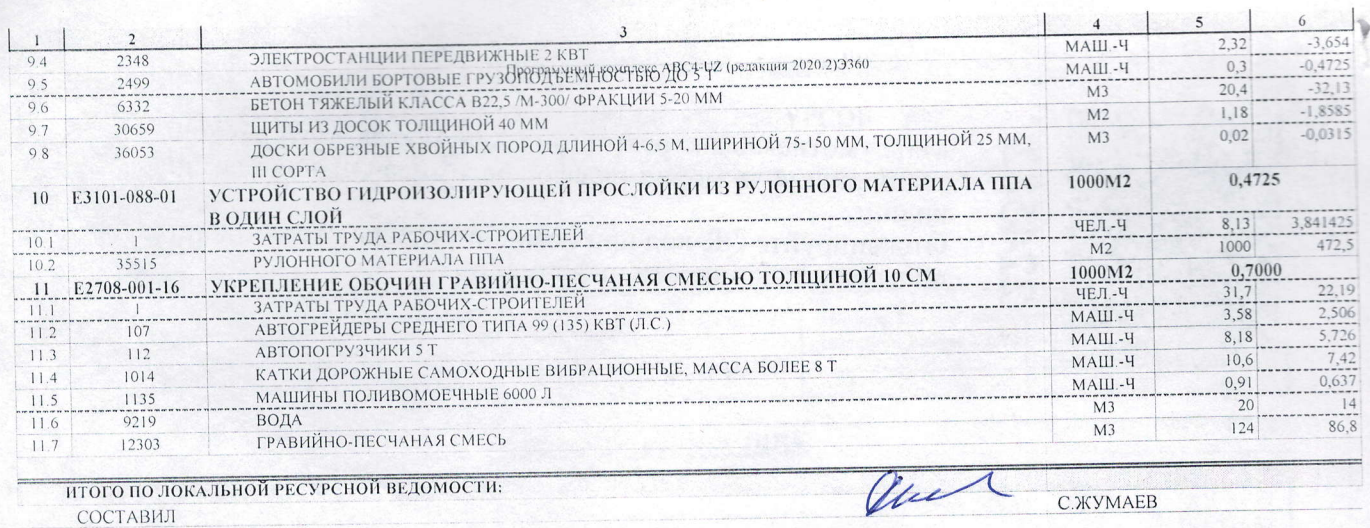 1 2 3 4 5 6
9.4 2348 ЭЛЕКТРОСТАНЦИИ ПЕРЕДВИЖНЫЕ 2 КВТ МАШ.-Ч 2,32 -3,654
Программный комплекс АВС4-UZ (редакция 2020.2)Э360
9.5 2499 АВТОМОБИЛИ БОРТОВЫЕ ГРУЗОПОДЪЕМНОСТЬЮ ДО 5 Т МАШ.-Ч 0,3 -0,4725
9.6 6332 БЕТОН ТЯЖЕЛЫЙ КЛАССА В22,5 /М-300/ ФРАКЦИИ 5-20 ММ М3 20,4 -32,13
9.7 30659 ЩИТЫ ИЗ ДОСОК ТОЛЩИНОЙ 40 ММ М2 1,18 -1,8585
9.8 36053 ДОСКИ ОБРЕЗНЫЕ ХВОЙНЫХ ПОРОД ДЛИНОЙ 4-6,5 М, ШИРИНОЙ 75-150 ММ, ТОЛЩИНОЙ 25 ММ, М3 0,02 -0,0315
III СОРТА
10 Е3101-088-01 УСТРОЙСТВО ГИДРОИЗОЛИРУЮЩЕЙ ПРОСЛОЙКИ ИЗ РУЛОННОГО МАТЕРИАЛА ППА 1000М2 0,4725
В ОДИН СЛОЙ
10.1 1 ЗАТРАТЫ ТРУДА РАБОЧИХ-СТРОИТЕЛЕЙ ЧЕЛ.-Ч 8,13 3,841425
10.2 35515 РУЛОННОГО МАТЕРИАЛА ППА М2 1000 472,5
11 Е2708-001-16 УКРЕПЛЕНИЕ ОБОЧИН ГРАВИЙНО-ПЕСЧАНАЯ СМЕСЬЮ ТОЛЩИНОЙ 10 СМ 1000М2 0,7000
11.1 1 ЗАТРАТЫ ТРУДА РАБОЧИХ-СТРОИТЕЛЕЙ ЧЕЛ.-Ч 31,7 22,19
11.2 107 АВТОГРЕЙДЕРЫ СРЕДНЕГО ТИПА 99 (135) КВТ (Л.С.) МАШ.-Ч 3,58 2,506
11.3 112 АВТОПОГРУЗЧИКИ 5 Т МАШ.-Ч 8,18 5,726
11.4 1014 КАТКИ ДОРОЖНЫЕ САМОХОДНЫЕ ВИБРАЦИОННЫЕ, МАССА БОЛЕЕ 8 Т МАШ.-Ч 10,6 7,42
11.5 1135 МАШИНЫ ПОЛИВОМОЕЧНЫЕ 6000 Л МАШ.-Ч 0,91 0,637
11.6 9219 ВОДА М3 20 14
11.7 12303 ГРАВИЙНО-ПЕСЧАНАЯ СМЕСЬ М3 124 86,8
ИТОГО ПО ЛОКАЛЬНОЙ РЕСУРСНОЙ ВЕДОМОСТИ:
СОСТАВИЛ С.ЖУМАЕВ